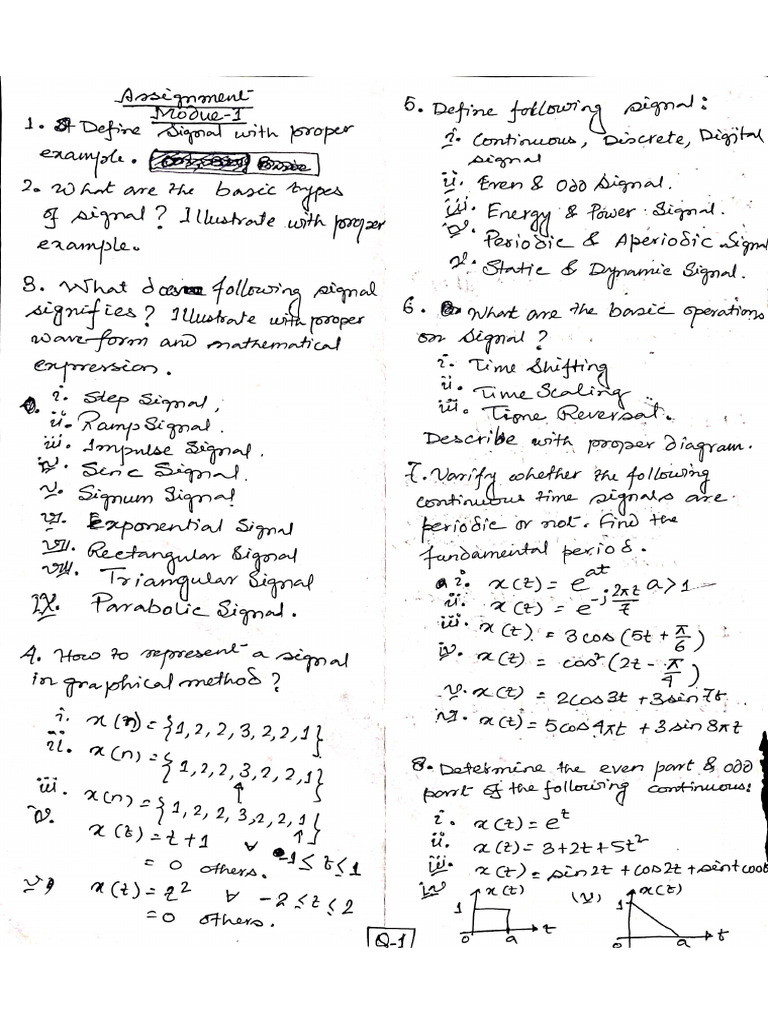 Assignment
Modue-1
1. Define Signal with proper
example. Basic
2. What are the basic types
of signal? Illustrate with proper
example.
3. What does following signal
signifies? Illustrate with proper
wave form and mathematical
expression.
i. Step Signal,
ii. Ramp Signal.
iii. Impulse Signal.
iv. Sinc Signal.
v. Signum Signal
vi. Exponential Signal
vii. Rectangular Signal
viii. Triangular Signal
IX. Parabolic Signal.
4. How to represent a signal
in graphical method?
i. x(n) = {1, 2, 2, 3, 2, 2, 1}
ii. x(n) = {1, 2, 2, 3, 2, 2, 1}
↑
iii. x(n) = {1, 2, 2, 3, 2, 2, 1}
↑
iv. x(t) = t + 1 ∀ -1 ≤ t ≤ 1
= 0 others.
v) x(t) = 2² ∀ -2 ≤ t ≤ 2
= 0 others.
Q-1
5. Define following signal:
i. Continuous, Discrete, Digital
signal
ii. Even & Odd Signal.
iii. Energy & Power Signal.
iv. Periodic & Aperiodic Signal
v. Static & Dynamic Signal.
6. What are the basic operations
on Signal?
i. Time Shifting
ii. Time Scaling
iii. Time Reversal.
Describe with proper diagram.
7. Varify whether the following
continuous time signals are
periodic or not. Find the
fundamental period.
i. x(t) = e^at a > 1
ii. x(t) = e^-j2πt/7
iii. x(t) = 3cos(5t + π/6)
iv. x(t) = cos²(2t - π/4)
v. x(t) = 2cos3t + 3sin7t
vi. x(t) = 5cos4πt + 3sin8πt
8. Determine the even part & odd
part of the following continuous:
i. x(t) = e^t
ii. x(t) = 3+2t+5t²
iii. x(t) = sin2t + cos2t + sint cost
iv x(t) 1 0 a t
(v) x(t) 1 0 a t